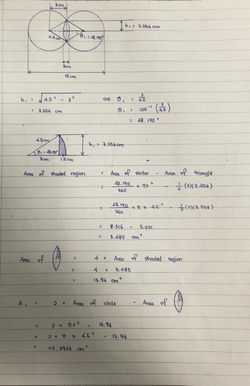 3cm
4.5cm
θ₁ = 48.190°
h₁ = 3.354 cm
3cm
15cm
h₁ = √4.5² - 3²
cos θ₁ = 3/4.5
= 3.354 cm
θ₁ = cos⁻¹ (3/4.5)
= 48.190°
4.5cm
h₁ = 3.354cm
θ₁ = 48.190°
3cm
1.5cm
Area of shaded region = Area of sector - Area of triangle
= 48.190/360 × πr² - ½ (3)(3.354)
= 48.190/360 × π × 4.5² - ½ (3)(3.354)
= 8.516 - 5.031
= 3.485 cm²
Area of = 4 × Area of shaded region
= 4 × 3.485
= 13.94 cm²
A₁ = 2 × Area of circle - Area of
= 2 × πr² - 13.94
= 2 × π × 4.5² - 13.94